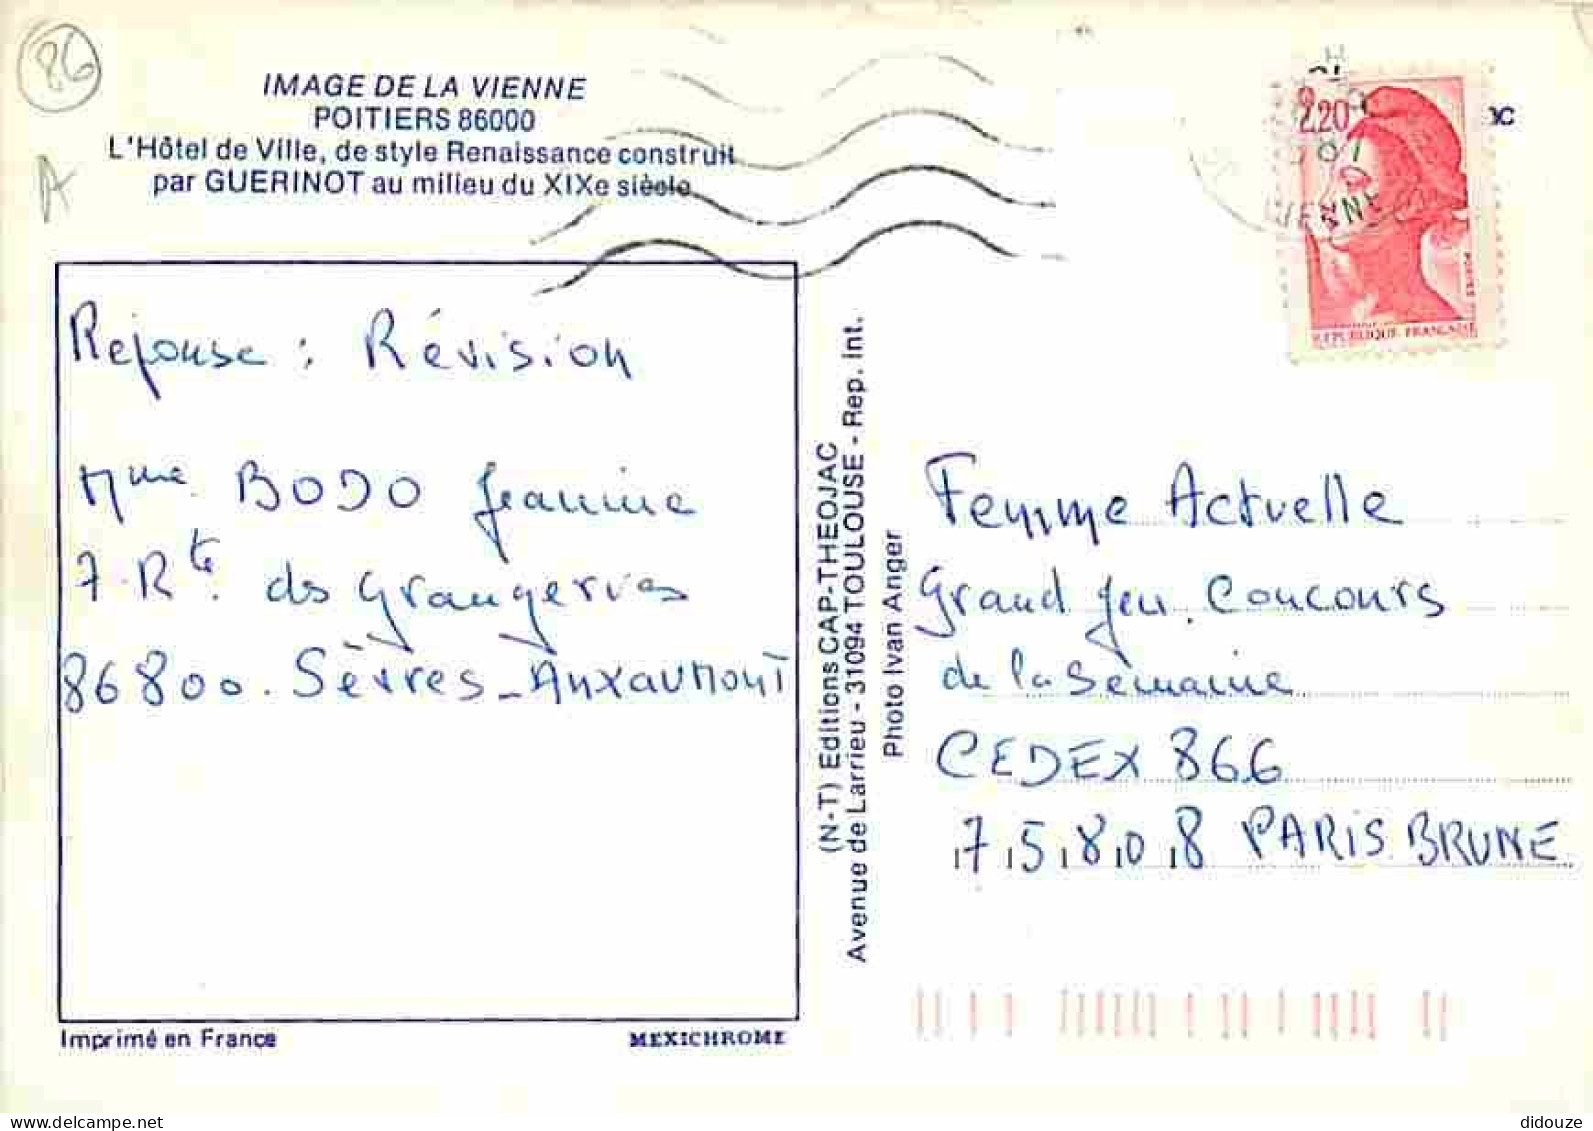 86
IMAGE DE LA VIENNE
POITIERS 86000
L'Hôtel de Ville, de style Renaissance construit
par GUERINOT au milieu du XIXe siècle
A
2,20
VIENNE
POSTES
REPUBLIQUE FRANÇAISE
Réponse : Révision
Mme BODO Jeanine
7 Rte. des Grangerves
86800. Sèvres-Anxaumont
(N-T) Editions CAP-THEOJAC
Avenue de Larrieu - 31094 TOULOUSE - Rep. Int.
Photo Ivan Anger
Femme Actuelle
Grand Jeu. Concours
de la Semaine
CEDEX 866
75808 PARIS BRUNE
Imprimé en France
MEXICHROME
delcampe.net
didouze